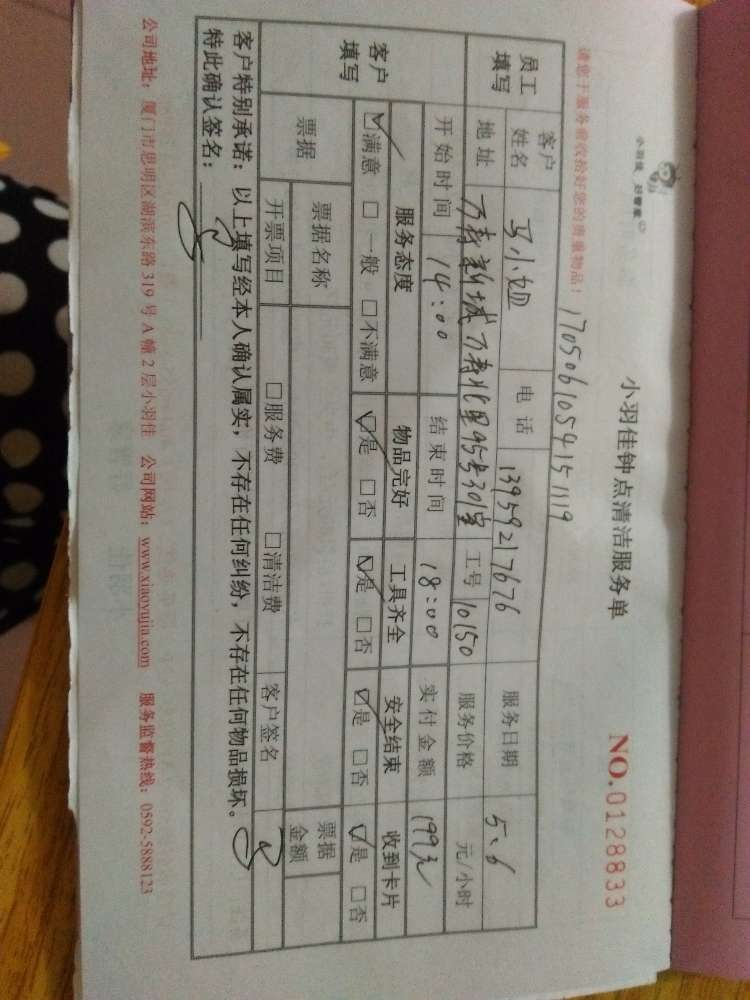 小羽佳 好管家
小羽佳钟点清洁服务单 NO.0128833
请您于服务前收拾好您的贵重物品! 1705061054151119
员工填写 客户姓名 马小姐 电话 13959217676 服务日期 5.6
地址 万寿新城万寿北里95号301室 工号 10150 服务价格 元/小时
开始时间 14:00 结束时间 18:00 实付金额 199元
客户填写 服务态度 物品完好 工具齐全 安全结束 收到卡片
☑满意 □一般 □不满意 ☑是 □否 ☑是 □否 ☑是 □否 ☑是 □否
票据 票据名称 票据金额
开票项目 □服务费 □清洁费 客户签名
客户特别承诺:以上填写经本人确认属实,不存在任何纠纷,不存在任何物品损坏。
特此确认签名:
公司地址:厦门市思明区湖滨东路319号A幢2层小羽佳 公司网站:www.xiaoyujia.com 服务监督热线:0592-5888123